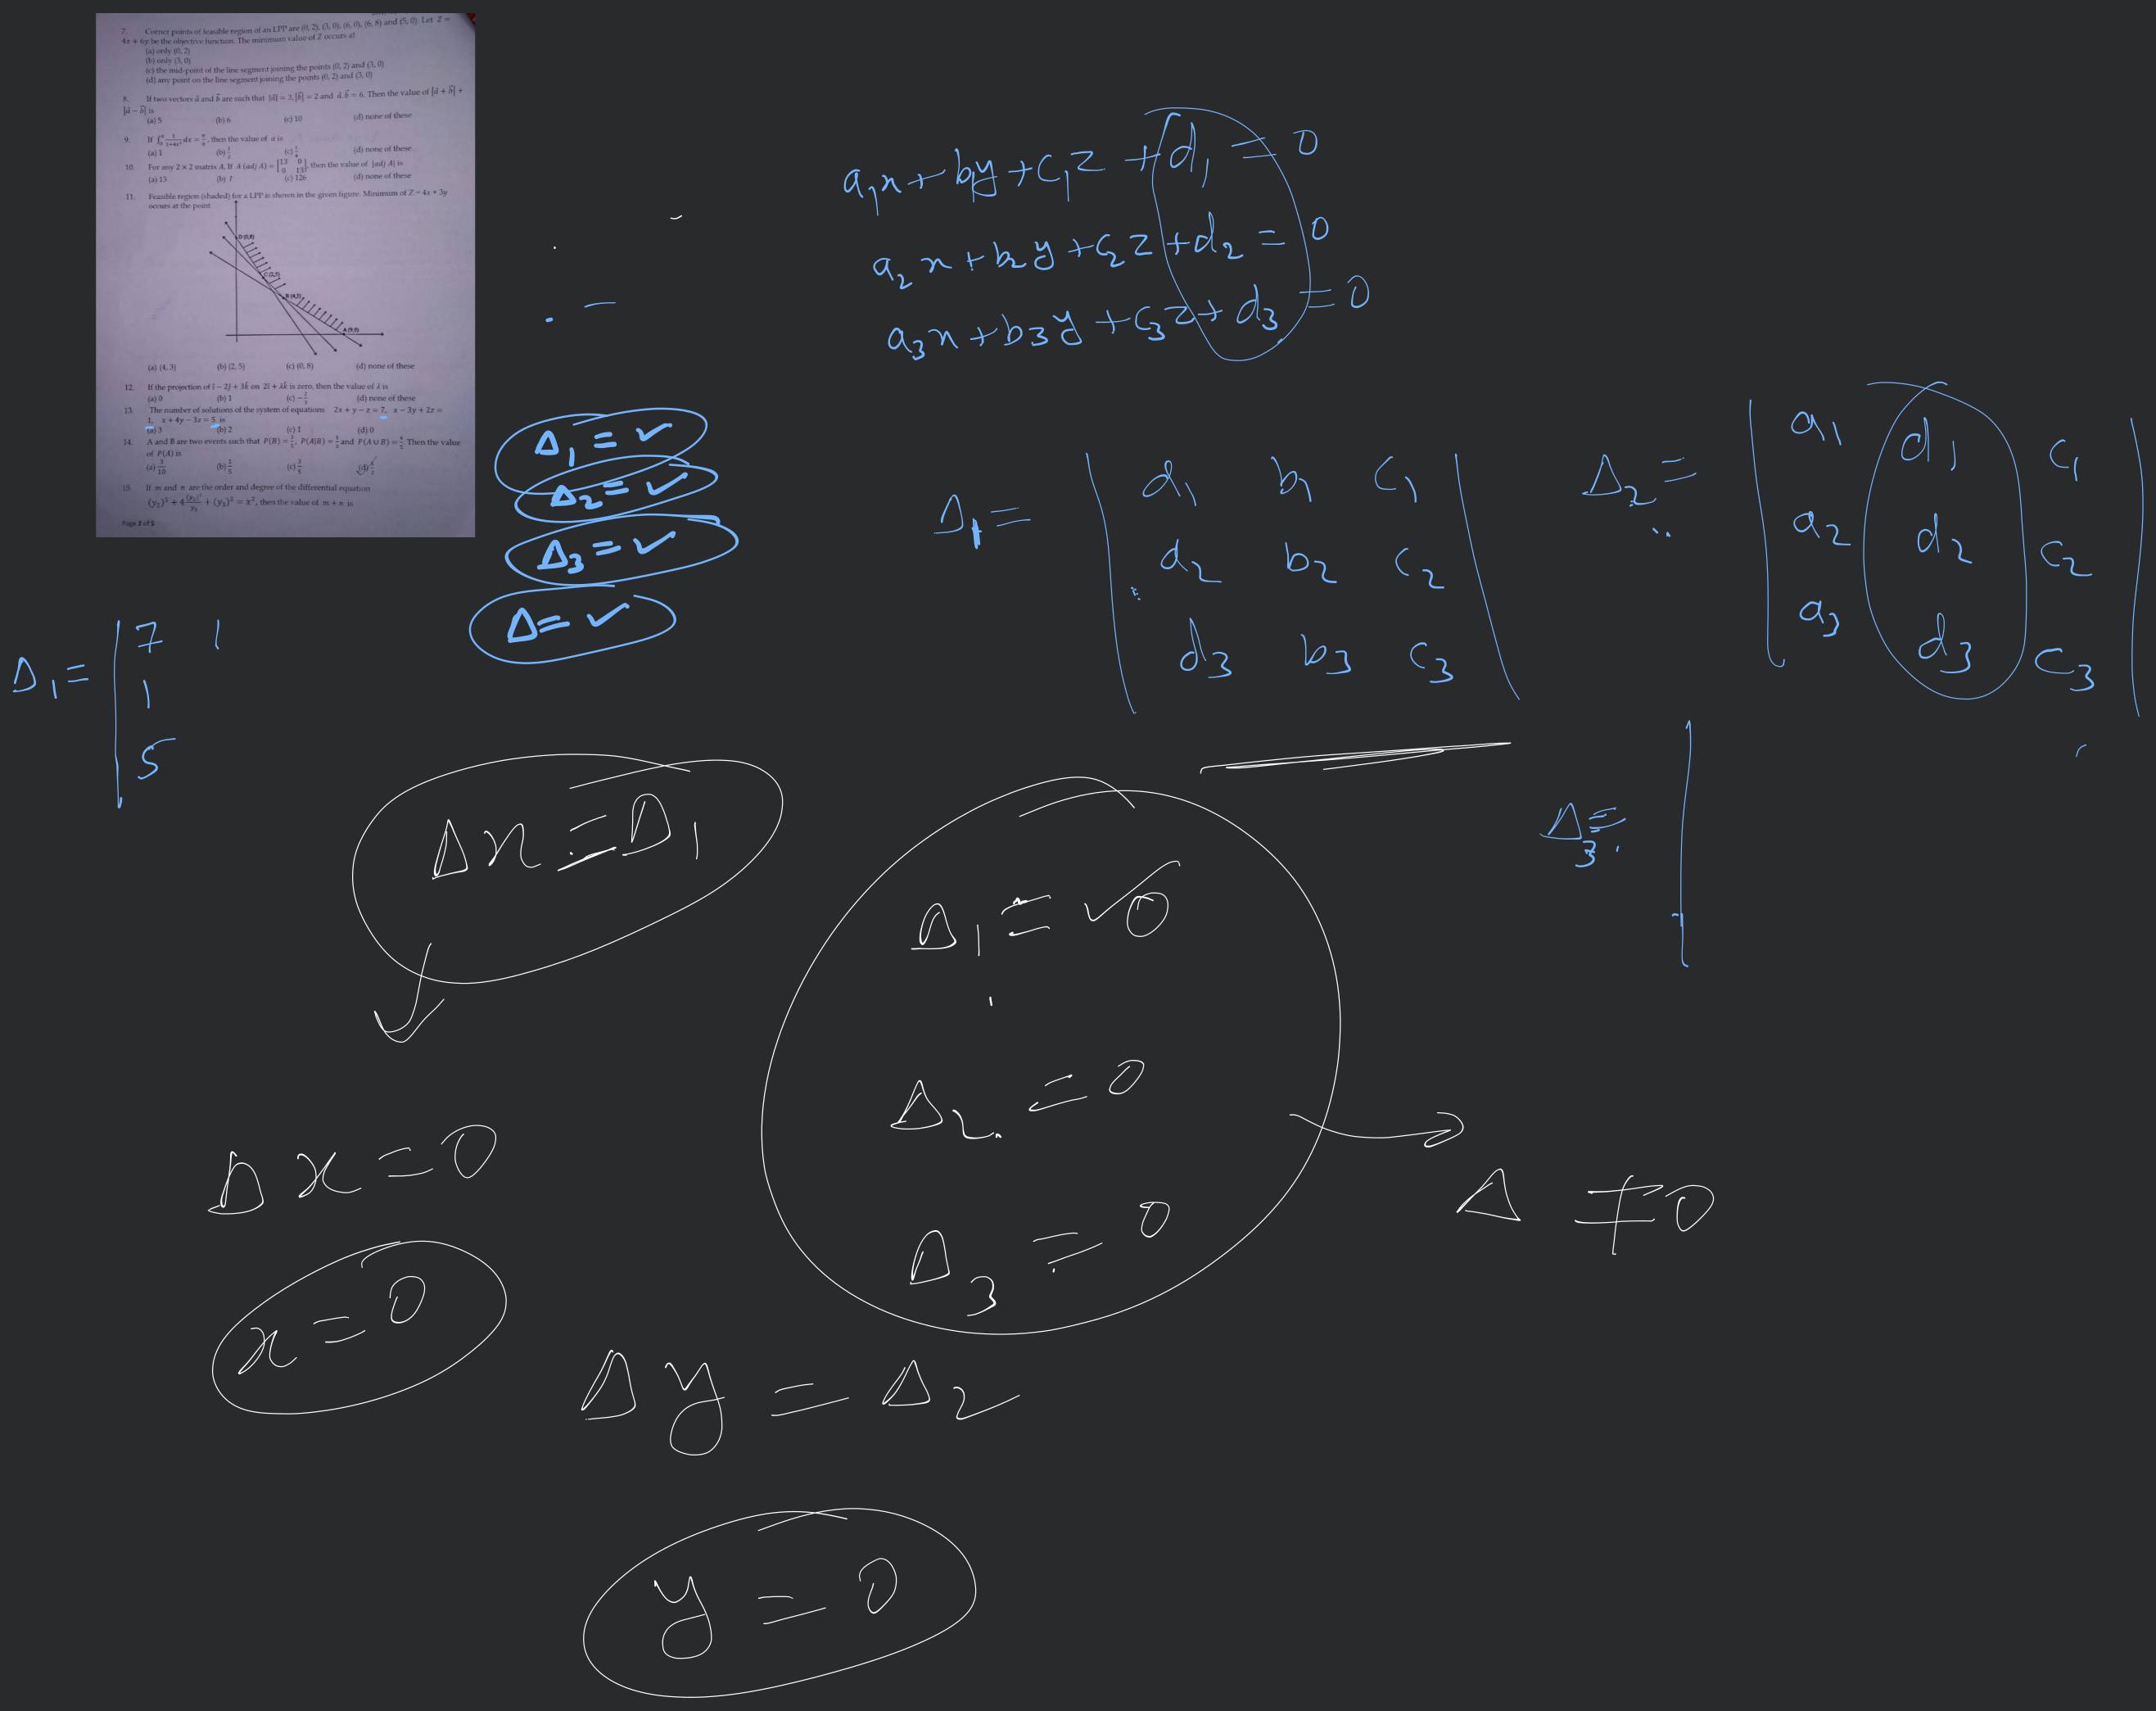 7. Corner points of feasible region of an LPP are (0, 2), (3, 0), (6, 0), (6, 8) and (5, 0). Let Z =
4x + 6y be the objective function. The minimum value of Z occurs at
(a) only (0, 2)
(b) only (3, 0)
(c) the mid-point of the line segment joining the points (0, 2) and (3, 0)
(d) any point on the line segment joining the points (0, 2) and (3, 0)
8. If two vectors a⃗ and b⃗ are such that |a⃗| = 3, |b⃗| = 2 and a⃗.b⃗ = 6. Then the value of |a⃗ + b⃗| +
|a⃗ − b⃗| is
(a) 5 (b) 6 (c) 10 (d) none of these
9. If dx = , then the value of a is
(a) 1 (d) none of these
10. For any 2 × 2 matrix A, If A (adj A) = [13 0
0 13], then the value of |adj A| is
(a) 13 (c) 126 (d) none of these
11. Feasible region (shaded) for a LPP is shown in the given figure. Minimum of Z = 4x + 3y
occurs at the point
D (0,8)
C (2,5)
B (4,3)
A (9,0)
(a) (4, 3) (b) (2, 5) (c) (0, 8) (d) none of these
12. If the projection of î − 2ĵ + 3k̂ on 2î + λk̂ is zero, then the value of λ is
(a) 0 (b) 1 (c) −2/3 (d) none of these
13. The number of solutions of the system of equations 2x + y − z = 7, x − 3y + 2z =
1, x + 4y − 3z = 5 is
(a) 3 (b) 2 (c) 1 (d) 0
14. A and B are two events such that P(B) = , P(A|B) = and P(A ∪ B) = . Then the value
of P(A) is
(a) 3/10 (b) 1/5 (c)
15. If m and n are the order and degree of the differential equation
then the value of m + n is
Page 2 of 5
a₁x + b₁y + c₁z + d₁ = 0
a₂x + b₂y + c₂z + d₂ = 0
a₃x + b₃y + c₃z + d₃ = 0
Δ₁ = ✓
Δ₂ = ✓
Δ₃ = ✓
Δ = ✓
Δ₁ = | d₁ b₁ c₁ |
d₂ b₂ c₂
d₃ b₃ c₃
Δ₂ = | a₁ d₁ c₁ |
a₂ d₂ c₂
a₃ d₃ c₃
Δ₁ = | 7 1
1
5
Δx = Δ₁
Δ₃ = |
Δ₁ = 0
Δ₂ = 0
Δ₃ = 0
Δ ≠ 0
Δx = 0
x = 0
Δy = Δ₂
y = 0